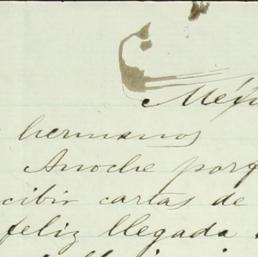 Méx
hermanos
Anoche porq
cibir cartas de
feliz llegada